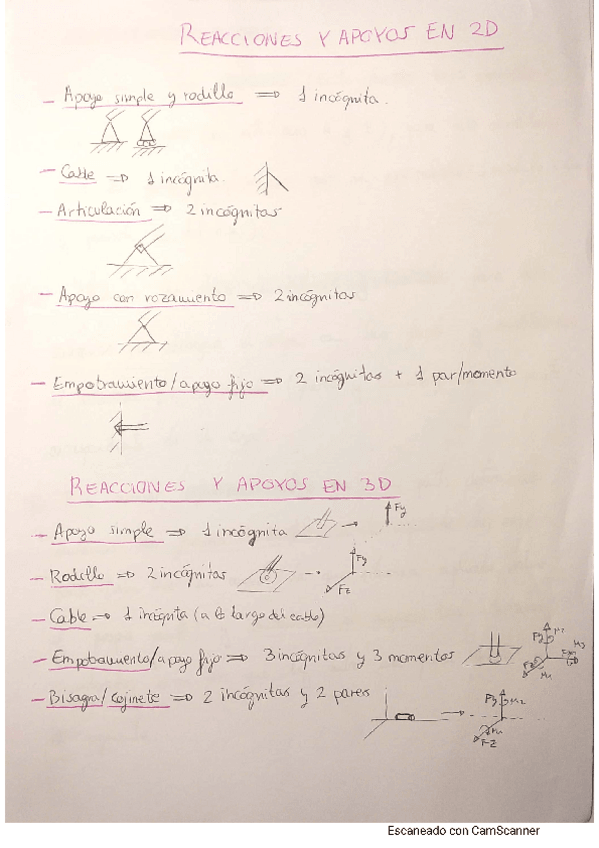 REACCIONES Y APOYOS EN 2D
- Apoyo simple y rodillo => 1 incógnita.
- Cable => 1 incógnita.
- Articulación => 2 incógnitas
- Apoyo con rozamiento => 2 incógnitas
- Empotramiento/apoyo fijo => 2 incógnitas + 1 par/momento
REACCIONES Y APOYOS EN 3D
- Apoyo simple => 1 incógnita → Fy
- Rodillo => 2 incógnitas → Fy
Fz
- Cable → 1 incógnita (a lo largo del cable)
- Empotramiento/apoyo fijo => 3 incógnitas y 3 momentos Fy
- Bisagra/cojinete => 2 incógnitas y 2 pares → Fy Mz
Fz
Escaneado con CamScanner